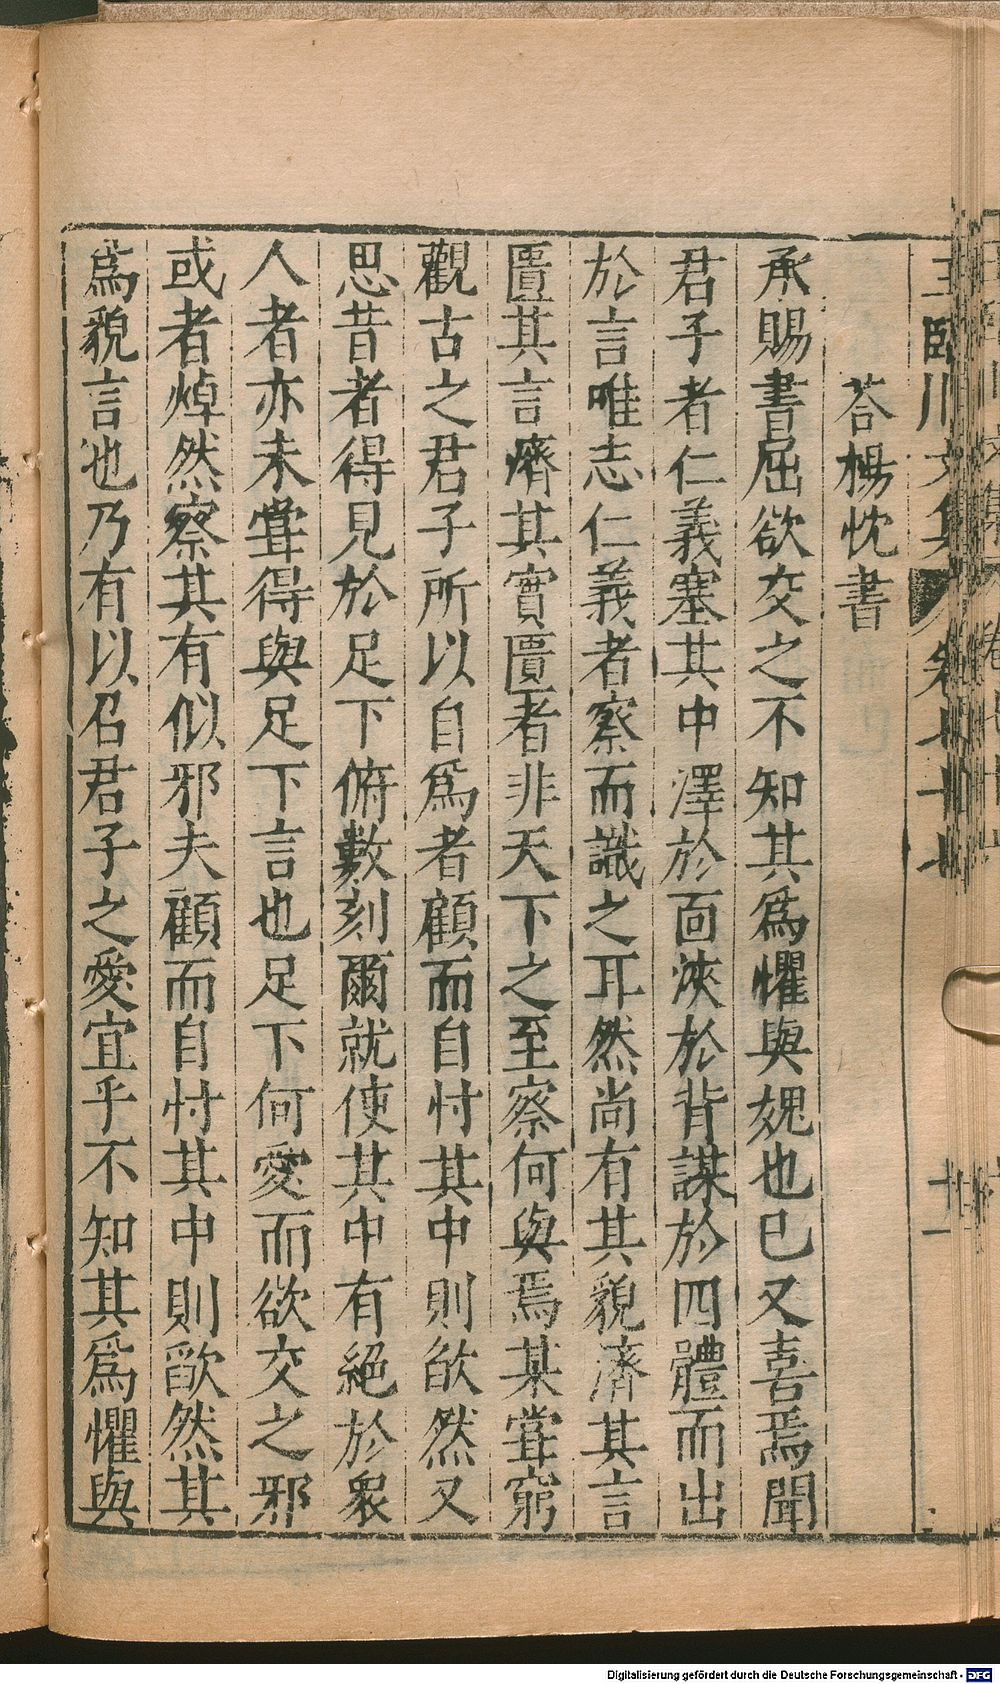 王臨川文集 卷七十七 十一
荅楊忱書
承賜書屈欲交之不知其爲懼與媿也巳又喜焉聞
君子者仁義塞其中澤於靣浹於背謀於四體而出
於言唯志仁義者察而識之耳然尚有其貌濟其言
匱其言濟其實匱者非天下之至察何與焉某甞窮
觀古之君子所以自爲者顧而自忖其中則欿然又
思昔者得見於足下俯數刻爾就使其中有絕於衆
人者亦未甞得與足下言也足下何愛而欲交之邪
或者焯然察其有似邪夫顧而自忖其中則欿然其
爲貌言也乃有以召君子之愛宜乎不知其爲懼與
Digitalisierung gefördert durch die Deutsche Forschungsgemeinschaft - DFG